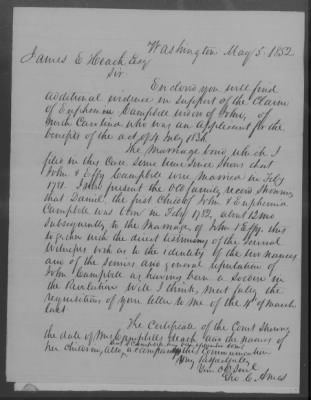 Washington May 5. 1852.
James E Heath Esq
Sir
Enclosed you will find
additional evidence in support of the Claim
of Euphemia Campbell widow of John, of
North Carolina who was an applicant for the
benefits of the act of 4 July 1836
The Marriage bond which I
filed in this Case some time since shows that
John & Effy Campbell were Married in Feby
1781. I now present the old family record showing
that Daniel the first Child of John & Euphemia
Campbell was born in Feby 1782, about 12 mos
subsequently to the Marriage of John & Effy. this
together with the direct testimony of the several
Witnesses both as to the identity of the two names
and of the service and general reputation of
John Campbell as having been a Soldier in
the Revolution will I think, meet fully the
requisitions of your letter to me of the 4th of March
last
The Certificate of the Court showing
the date of Mrs Campbells death and the names of
her children, also accompanies this Communication
Very Respectfully
Your Obt Servt
Geo C. Ames